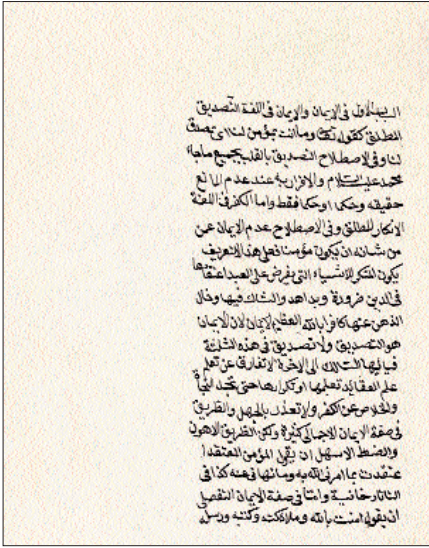 الباب الاول فى الايمان والايمان فى اللغة التصديق
المطلق كقوله تعالى وما انت بمؤمن لنا اى بمصدق
لنا وفى الاصطلاح التصديق بالقلب بجميع ماجاء
محمد عليه السلام والاقرار به عند عدم المانع
حقيقه وحكما اوحكما فقط واما الكفر فى اللغة
الانكار المطلق وفى الاصطلاح عدم الايمان عمن
من شانه ان يكون مؤمنا فعلى هذا التعريف
يكون المنكر للاشياء التى يفرض على العبد اعتقادها
فى الدين ضرورة وبداهة والشاك فيها وخال
الذهن عنها كافرا بالله العظيم الايمان لان الايمان
هو التصديق ولا تصديق فى هذه الثلثة
فيا ايها السالك الى الاخرة لا تفارق عن تعلم
علم العقائد تعلمها او تكرارها حتى تجد النجاة
والخلاص عن الكفر ولا تعذر بالجهل والطريق
فى صفة الايمان الاجمالى كثيرة ولكن الطريق الاهون
والضبط الاسهل ان يقول المؤمن المعتقد
عتقدت بما امرنى الله به وما نهانى عنه كذا فى
التاتارخانية واما فى صفة الايمان التفصلى
ان يقول امنت بالله وملائكته وكتبه ورسله